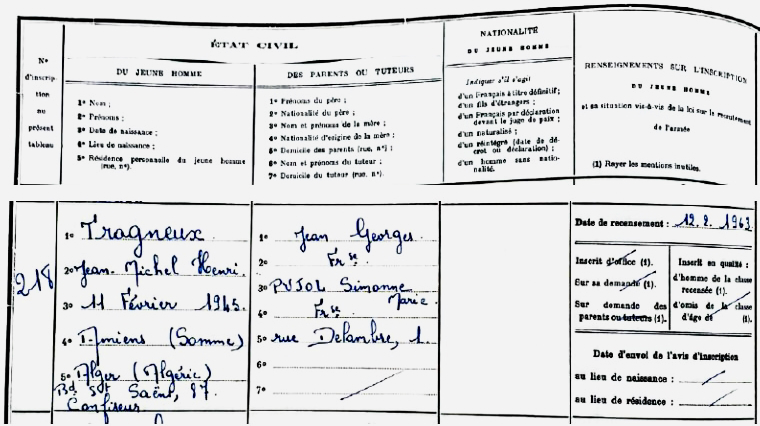 N°
d'inscrip-
tion
au
présent
tableau
ÉTAT CIVIL
DU JEUNE HOMME
1° Nom ;
2° Prénoms ;
3° Date de naissance ;
4° Lieu de naissance ;
5° Résidence personnelle du jeune homme
(rue, n°).
DES PARENTS OU TUTEURS
1° Prénoms du père ;
2° Nationalité du père ;
3° Nom et prénoms de la mère ;
4° Nationalité d'origine de la mère ;
5° Domicile des parents (rue, n°) ;
6° Nom et prénoms du tuteur ;
7° Domicile du tuteur (rue, n°).
NATIONALITÉ
DU JEUNE HOMME
Indiquer s'il s'agit
d'un Français à titre définitif ;
d'un fils d'étrangers ;
d'un Français par déclaration
devant le juge de paix ;
d'un naturalisé ;
d'un réintégré (date de dé-
cret ou déclaration) ;
d'un homme sans natio-
nalité.
RENSEIGNEMENTS SUR L'INSCRIPTION
DU JEUNE HOMME
et sa situation vis-à-vis de la loi sur le recrutement
de l'armée
(1) Rayer les mentions inutiles.
218
1° Tragneux
2° Jean-Michel Henri.
3° 11 Février 1945.
4° Amiens (Somme)
5° Alger (Algérie)
Bd St Saëns, 87.
Confiseur
1° Jean Georges
2° Frse
3° PUJOL Simonne
Marie
4° Frse
5° rue Delambre, 1.
6°
7°
Date de recensement : 12.2.1963
Inscrit d'office (1).
Sur sa demande (1).
Sur demande des
parents ou tuteurs (1).
Inscrit en qualité :
d'homme de la classe
recensée (1).
d'omis de la classe
d'âge de (1).
Date d'envoi de l'avis d'inscription
au lieu de naissance :
au lieu de résidence :